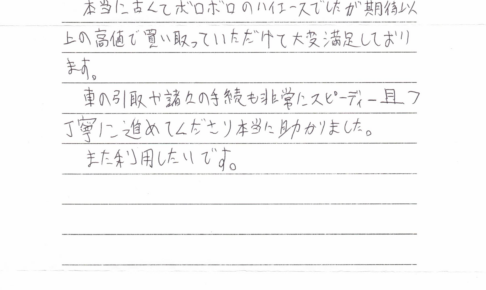 本当に古くてボロボロのハイエースでしたが期待以
上の高値で買い取っていただけて大変満足しており
ます。
車の引取や諸々の手続も非常にスピーディー且つ
丁寧に進めてくださり本当に助かりました。
また利用したいです。